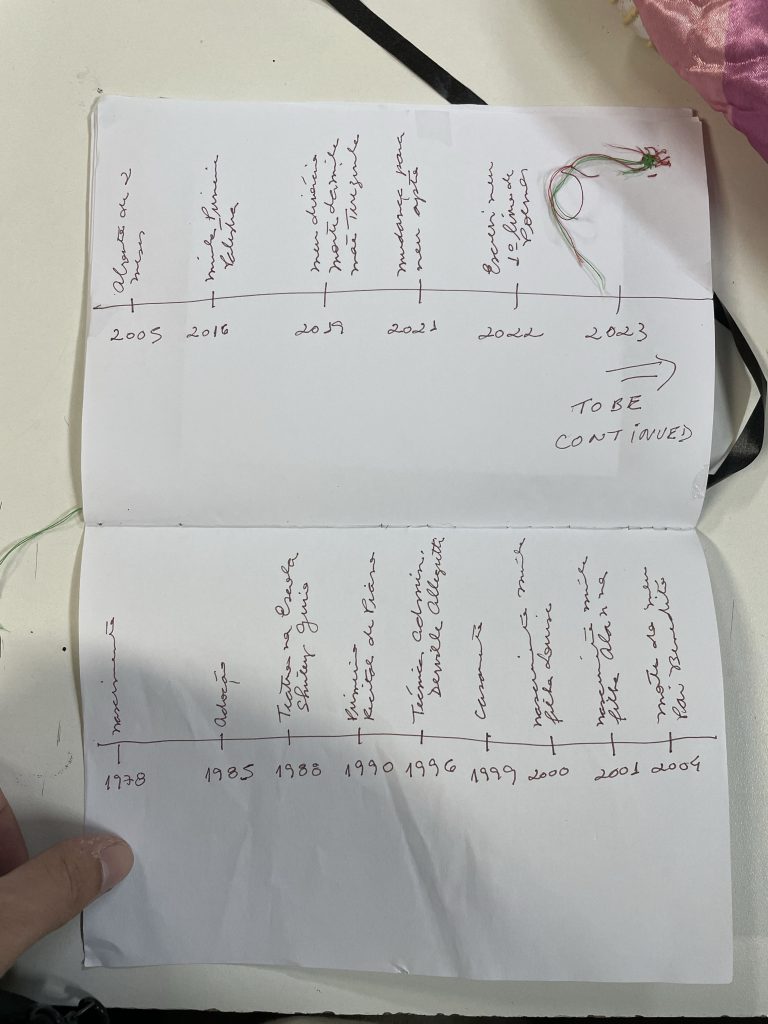 Aborto de 2
meses
minha Primeira
Palestra
meu divórcio
morte da minha
mãe Terezinha
mudança para
meu apto
Escrevi meu
1º livro de
Poemas
2005 2016 2019 2021 2022 2023
TO BE
CONTINUED
nascimento
Adoção
Teatro na Escola
Shirley
Primeiro
Recital de Piano
Técnica Admin.
Derville Allegretti
Casamento
nascimento minha
filha Louise
nascimento minha
filha
morte do meu
Pai Benedito
1978 1985 1988 1990 1996 1999 2000 2001 2004